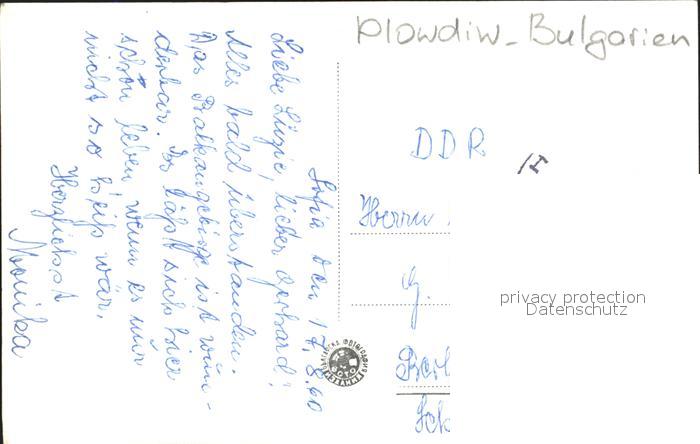 Plowdiw - Bulgarien
Sofia den 17.8.60
Liebe Lüzie, lieber Gerhard!
Alles bald überstanden.
Das Balkangebirge ist wun-
derbar. Es läßt sich hier
schön leben, wenn es nur
nicht so heiß wär.
Herzlichst
Monika
DDR
Herrn
G.
Berl
privacy protection
Datenschutz